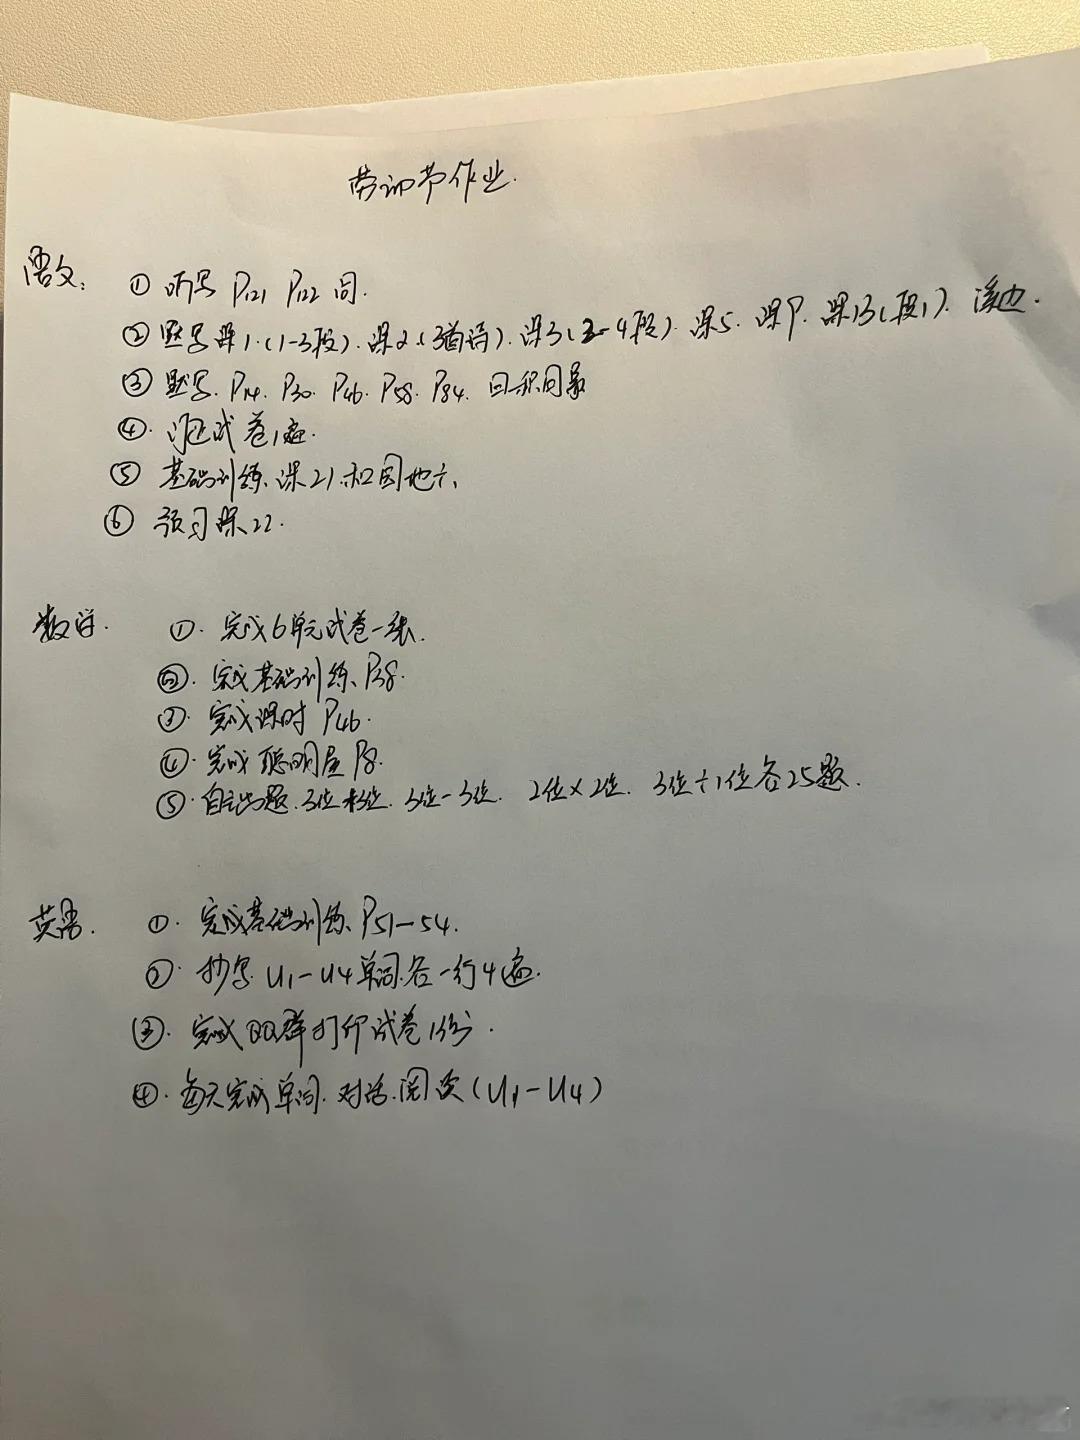 劳动节作业.
语文: ① 听写 P121 P122 词.
② 默写课1.(1-3段). 课2.(3首诗). 课3(2-4段). 课5. 课9. 课13(段1). 溪边.
③ 默写. P14. P30. P46. P58. P84. 日积月累
④. 试卷1遍.
⑤ 基础训练、课21.和园地六、
⑥ 预习课、22.
数学. ①. 完成6单元试卷一张.
②. 完成基础训练、P38.
③. 完成课时 P46.
④. 完成聪明屋P8.
⑤. 自主出题. 3位+3位. 3位-3位. 2位×2位. 3位÷1位各25题.
英语. ①. 完成基础训练、P51-54.
②. 抄写 U1-U4单词.各一行4遍.
③. 完成QQ群打印试卷1份.
④. 每天完成单词. 对话.阅读(U1-U4)